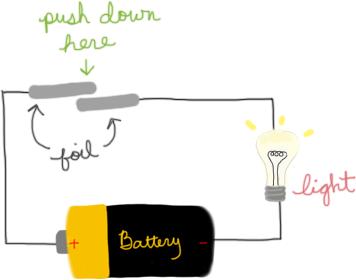 push down
here
foil
light
+ Battery -